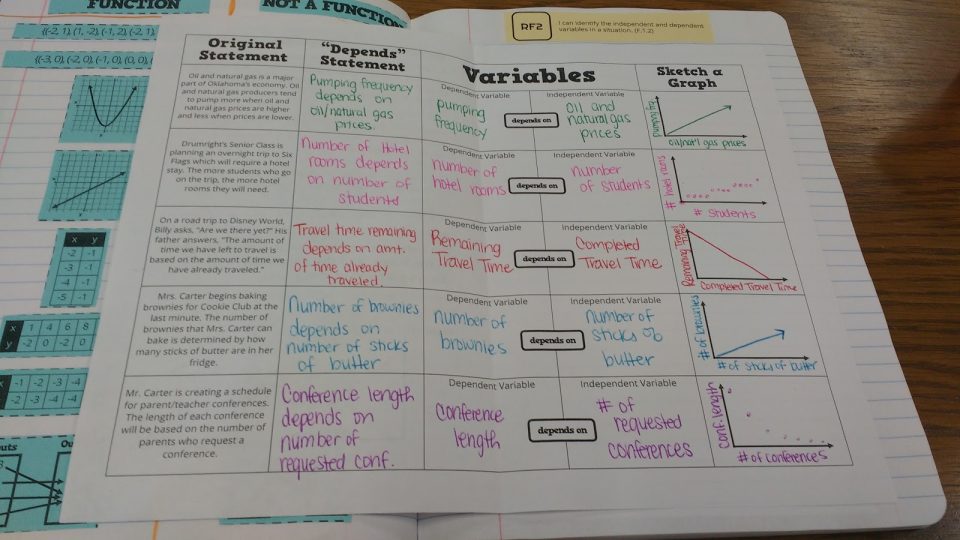 FUNCTION
NOT A FUNCTION
{(-2, 1), (1, -2), (-1, 2), (-2, 1)}
x y
-2 -1
-3 -1
-4 -1
-5 -1
x 1 4 6 8
y -2 0 -2 0
-1 -2 -3 -4
-2 -3 -4 -4
RF2
I can identify the independent and dependent
variables in a situation. (F.1.2)
Original
Statement
"Depends"
Statement
Variables
Sketch a
Graph
Oil and natural gas is a major
part of Oklahoma's economy. Oil
and natural gas producers tend
to pump more when oil and
natural gas prices are higher
and less when prices are lower.
Pumping frequency
depends on
oil/natural gas
prices.
Dependent Variable
pumping
frequency
depends on
Independent Variable
oil and
natural gas
prices
oil/nat'l gas prices
Drumright's Senior Class is
planning an overnight trip to Six
Flags which will require a hotel
stay. The more students who go
on the trip, the more hotel
rooms they will need.
Number of Hotel
rooms depends
on number of
students
Dependent Variable
number of
hotel rooms
depends on
Independent Variable
number
of students
# hotel rooms
# students
On a road trip to Disney World,
Billy asks, "Are we there yet?" His
father answers, "The amount of
time we have left to travel is
based on the amount of time we
have already traveled."
Travel time remaining
depends on amt.
of time already
traveled.
Dependent Variable
Remaining
Travel Time
depends on
Independent Variable
Completed
Travel Time
Remaining Travel Time
Completed Travel Time
Mrs. Carter begins baking
brownies for Cookie Club at the
last minute. The number of
brownies that Mrs. Carter can
bake is determined by how
many sticks of butter are in her
fridge.
Number of brownies
depends on
number of sticks
of butter
Dependent Variable
number of
brownies
depends on
Independent Variable
number of
sticks of
butter
# of brownies
# of sticks of butter
Mr. Carter is creating a schedule
for parent/teacher conferences.
The length of each conference
will be based on the number of
parents who request a
conference.
Conference length
depends on
number of
requested conf.
Dependent Variable
Conference
length
depends on
Independent Variable
# of
requested
conferences
conf. length
# of conferences